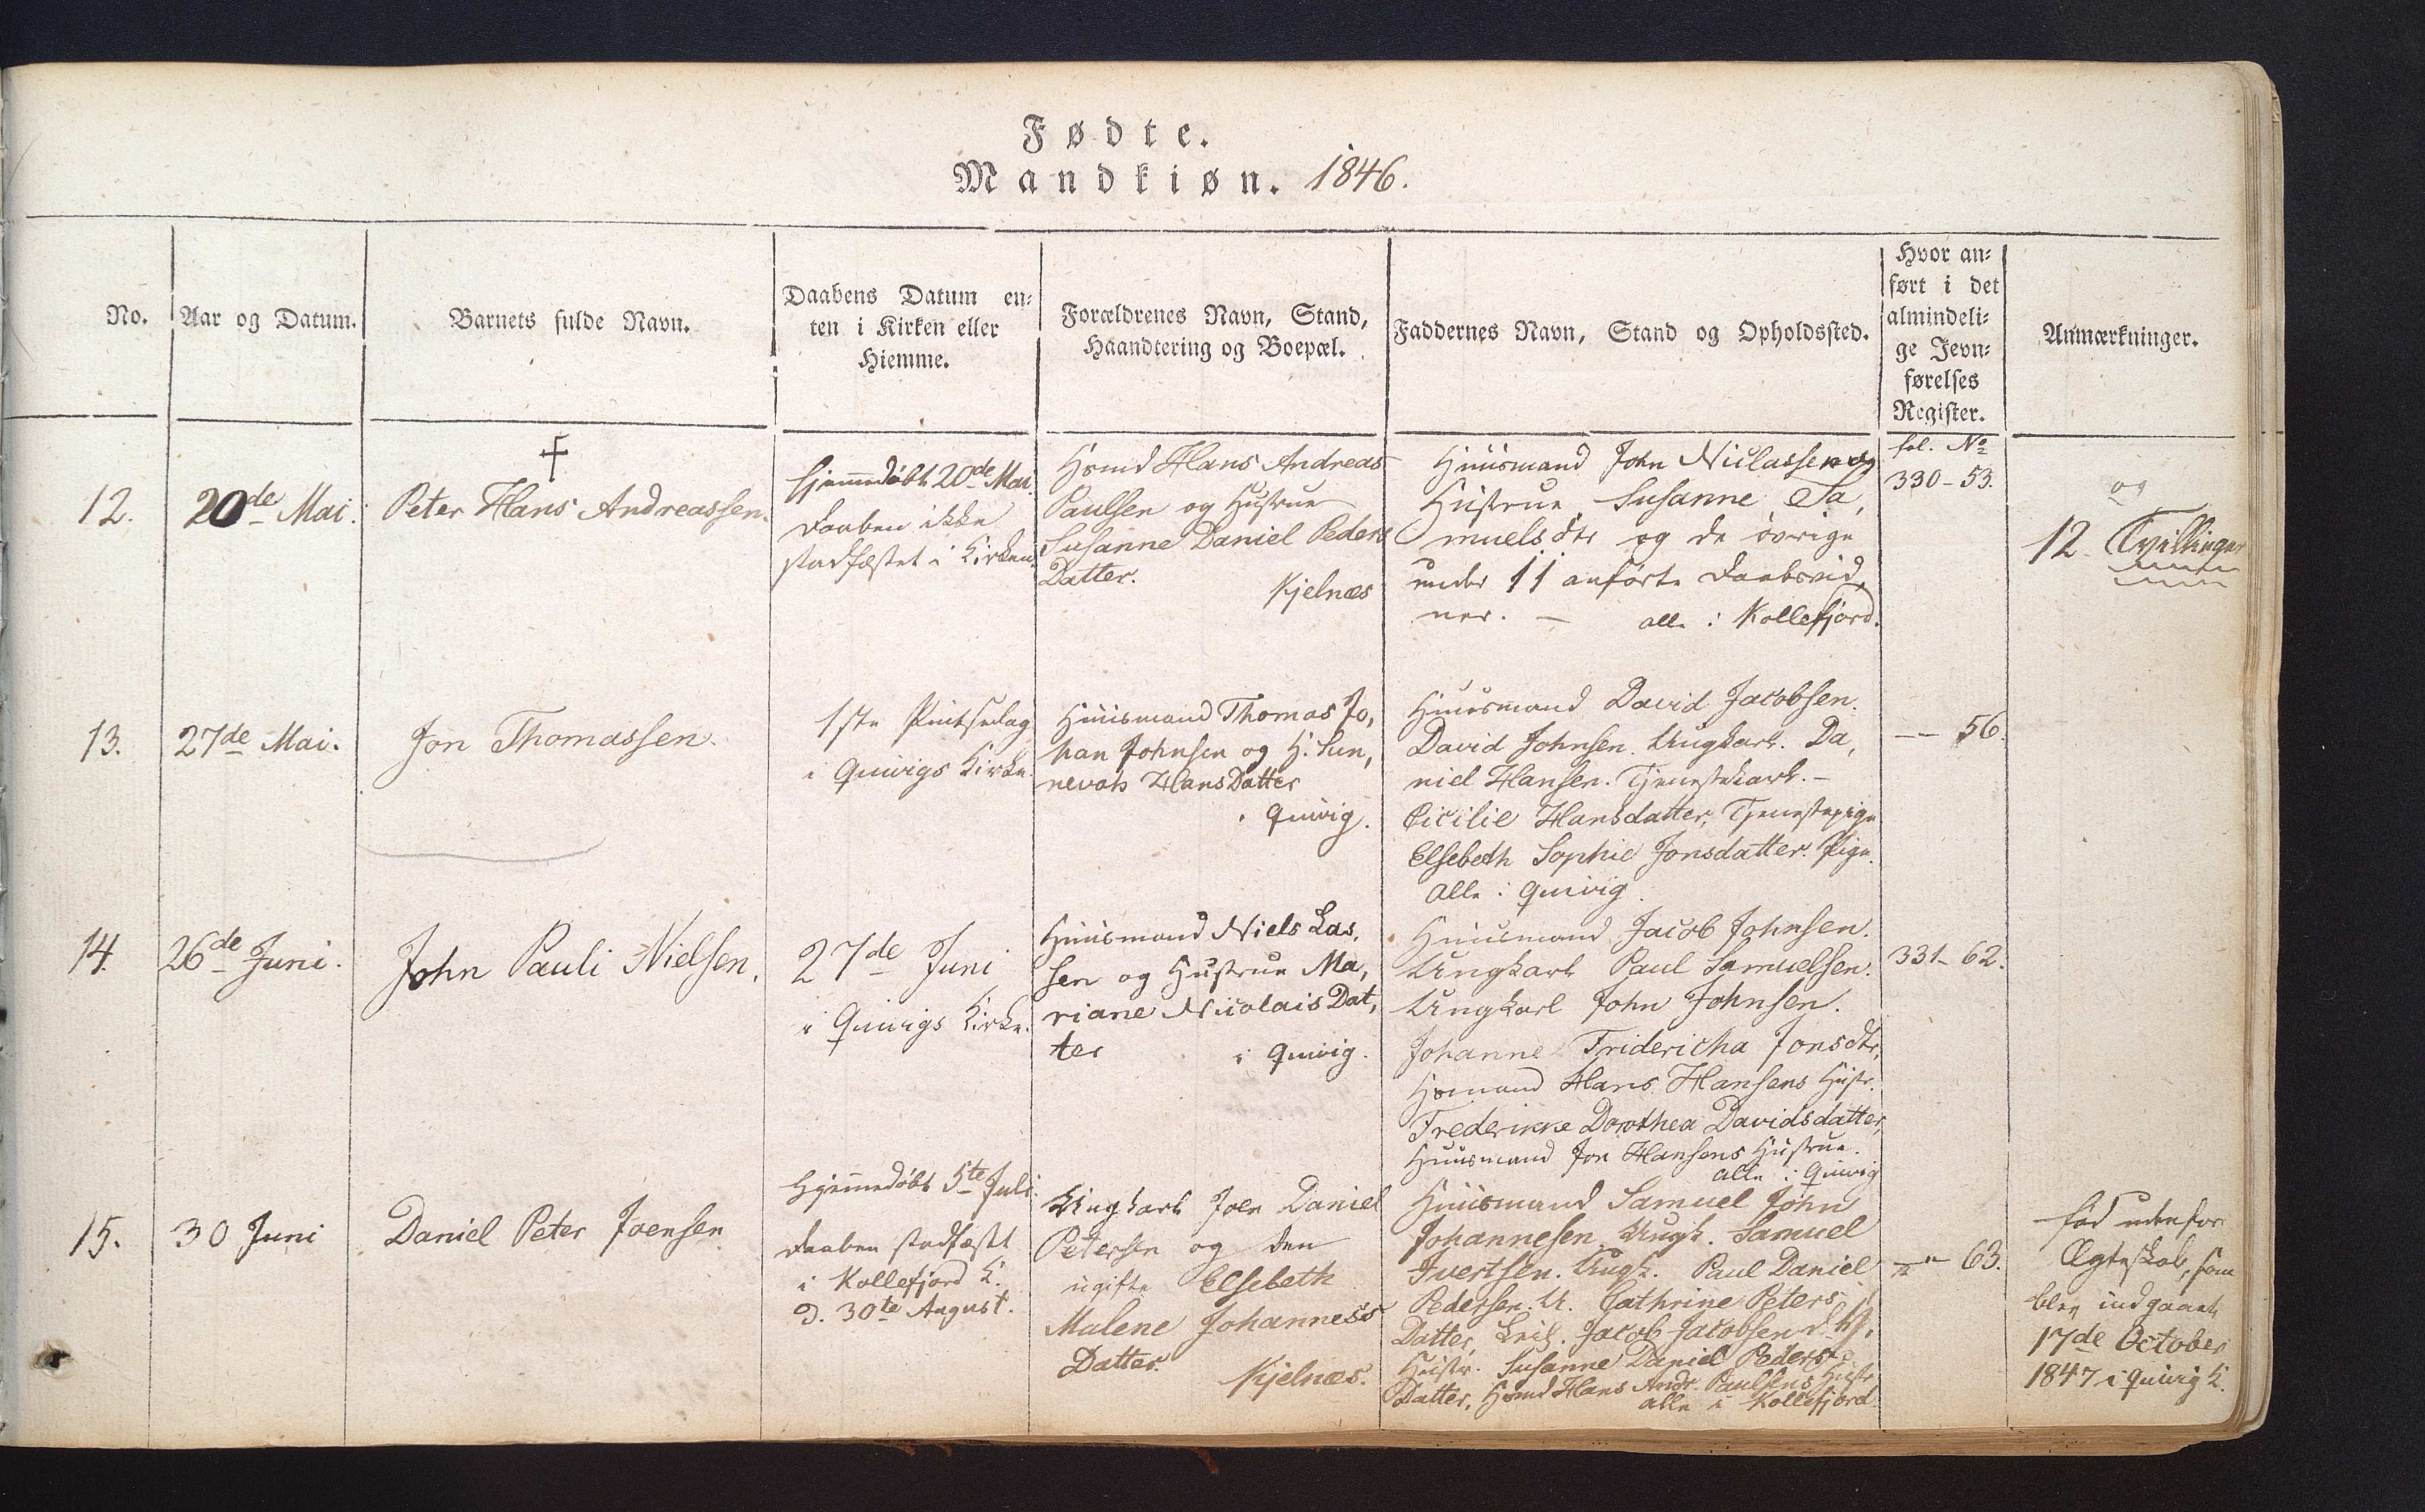 Fødte.
Mandkiøn. 1846.
No.
Aar og Datum.
Barnets fulde Navn.
Daabens Datum en-
ten i Kirken eller
Hiemme.
Forældrenes Navn, Stand,
Haandtering og Boepæl.
Faddernes Navn, Stand og Opholdssted.
Hvor an-
ført i det
almindeli-
ge Jevn-
førelses
Register.
Anmærkninger.
12.
20de Mai.
†
Peter Hans Andreassen.
Hjemmedøbt 20de Mai.
Daaben ikke
stadfæstet i Kirken.
Hsmd Hans Andreas
Paulsen og Hustrue
Susanne Daniel Peders
Datter.
Kjelnæs
Huusmand John Niclassen og
Hustrue Susanne Sa,
muelsdtr og de øvrige
under 11 anførte Daabsvid,
ner. — alle i Kollefjord.
fol. No
330 - 53.
og
12. Tvillinger
13.
27de Mai.
Jon Thomassen.
1ste Pintsedag
i Qvivigs Kirke.
Huusmand Thomas Jo,
han Johnsen og H. Sun,
nevah HansDatter
i Qvivig.
Huusmand David Jacobsen.
David Johnsen. Ungkarl. Da,
niel Hansen. Tjenestekarl. —
Cicilie Hansdatter, Tjenestepige
Elsebeth Sophie Jonsdatter. Pige.
Alle i Qvivig.
— 56.
14.
26de Juni.
John Pauli Nielsen.
27de Juni
i Qvivigs Kirke.
Huusmand Niels Las,
sen og Hustrue Ma,
riane Nicolais Dat,
ter i Qvivig.
Huusmand Jacob Johnsen.
Ungkarl Paul Samuelsen.
Ungkarl John Johnsen.
Johanne Fridericha Jonsdtr,
Hsmand Hans Hansens Hustr.
Frederikke Dorothea Davidsdatter,
Huusmand Jon Hansens Hustrue.
alle i Qvivig
331 - 62.
15.
30 Juni
Daniel Peter Joensen
Hjemmedøbt 5te Juli.
Daaben stadfæstet
i Kollefjord K.
d. 30te August.
Ungkarl Joen Daniel
Petersen og den
ugifte Elsebeth
Malene Johannes's
Datter.
Kjelnæs.
Huusmand Samuel John
Johannesen. Ungk. Samuel
Ivertsen. Ungk. Paul Daniel
Pedersen. U. Cathrine Peters
Datter, Jacob Jacobsen
Hustr. Susanne Daniel Peders
Datter, Hsmd Hans Andr. Paulsens Hustr
alle i Kollefjord
— 63.
fød udenfor
Ægteskab, som
blev indgaaet
17de October
1847 i Qvivig K.